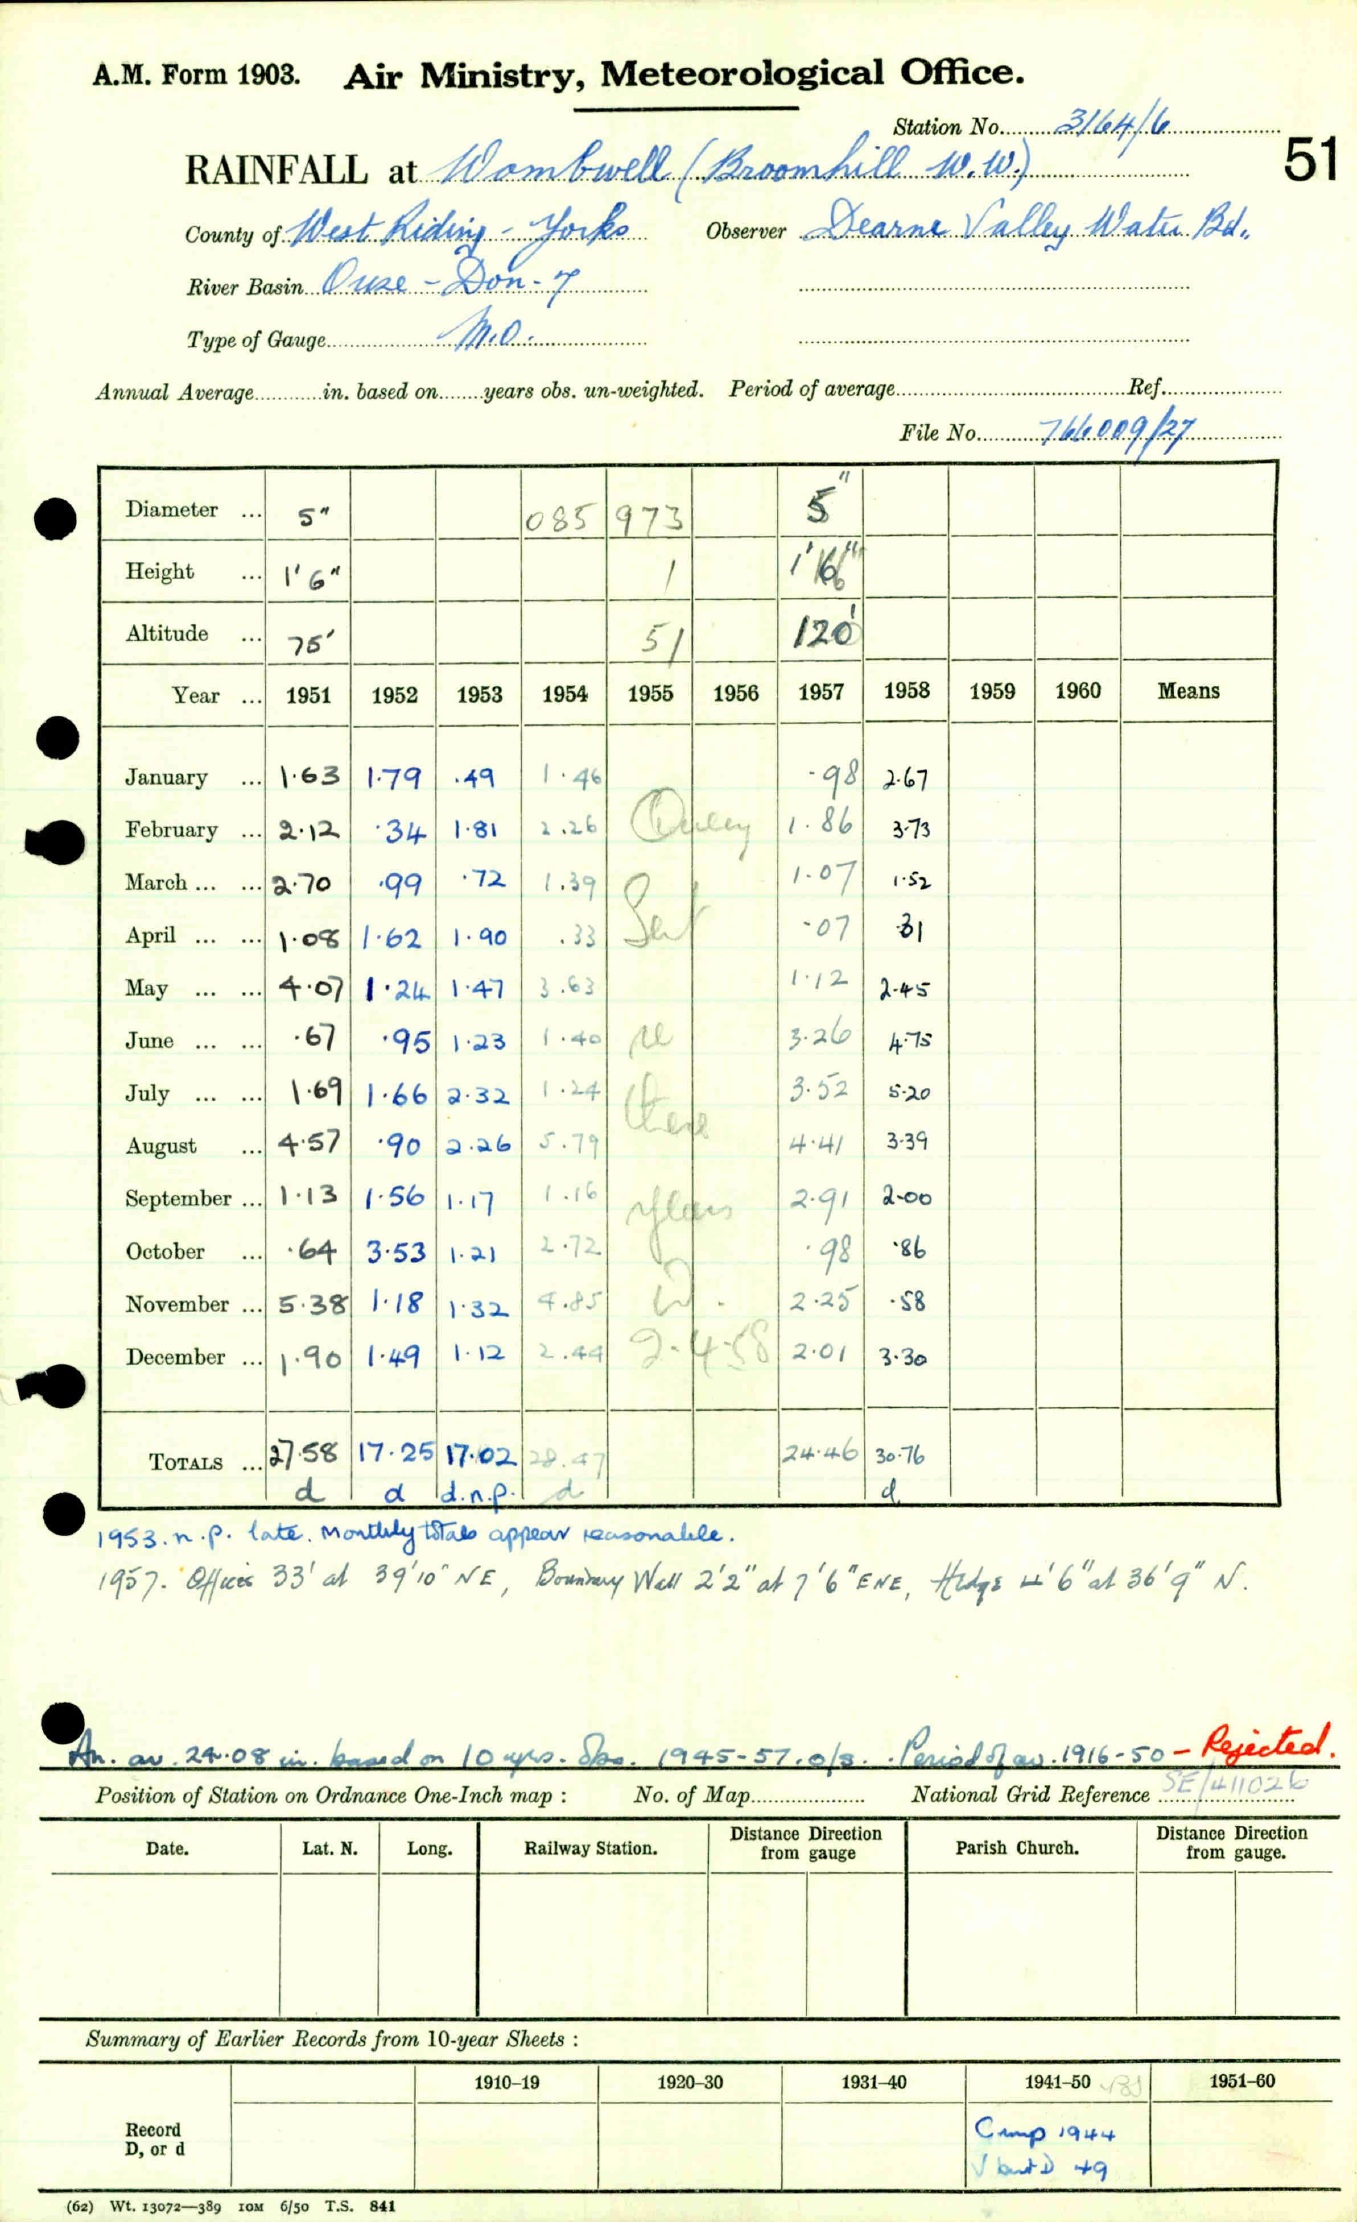 A.M. Form 1903. Air Ministry, Meteorological Office.
Station No. 3164/6
RAINFALL at Wombwell (Broomhill W.W.) 51
County of West Riding - Yorks Observer Dearne Valley Water Bd.
River Basin Ouse - Don - 7
Type of Gauge M.O.
Annual Average in. based on years obs. un-weighted. Period of average Ref.
File No. 766009/27
Diameter ... 5" 085 973 5"
Height ... 1'6" 1 1'6"
Altitude ... 75' 51 120'
Year ... 1951 1952 1953 1954 1955 1956 1957 1958 1959 1960 Means
January ... 1.63 1.79 .49 1.46 .98 2.67
February ... 2.12 .34 1.81 2.26 Query 1.86 3.73
March ... ... 2.70 .99 .72 1.39 1.07 1.52
April ... ... 1.08 1.62 1.90 .33 Sent .07 .31
May ... ... 4.07 1.24 1.47 3.63 1.12 2.45
June ... ... .67 .95 1.23 1.40 re 3.26 4.75
July ... ... 1.69 1.66 2.32 1.24 these 3.52 5.20
August ... 4.57 .90 2.26 5.79 4.41 3.39
September ... 1.13 1.56 1.17 1.16 years 2.91 2.00
October ... .64 3.53 1.21 2.72 .98 .86
November ... 5.38 1.18 1.32 4.85 2.25 .58
December ... 1.90 1.49 1.12 2.44 2.4.58 2.01 3.30
TOTALS ... 27.58 17.25 17.02 28.47 24.46 30.76
d d d.n.p. d d
1953. n.p. late. Monthly totals appear reasonable.
1957. Offices 33' at 39'10" NE, Boundary Wall 2'2" at 7'6" ENE, Hedge 4'6" at 36'9" N.
An. av. 24.08 in. based on 10 yrs. obs. 1945-57. o/s. Period of av. 1916-50 - Rejected.
Position of Station on Ordnance One-Inch map : No. of Map National Grid Reference SE/411026
Date. Lat. N. Long. Railway Station. Distance from Direction gauge Parish Church. Distance from Direction gauge.
Summary of Earlier Records from 10-year Sheets :
1910–19 1920–30 1931–40 1941–50 1951–60
Record D, or d Comp 1944
√ but D 49
(62) Wt. 13072—389 10M 6/50 T.S. 841